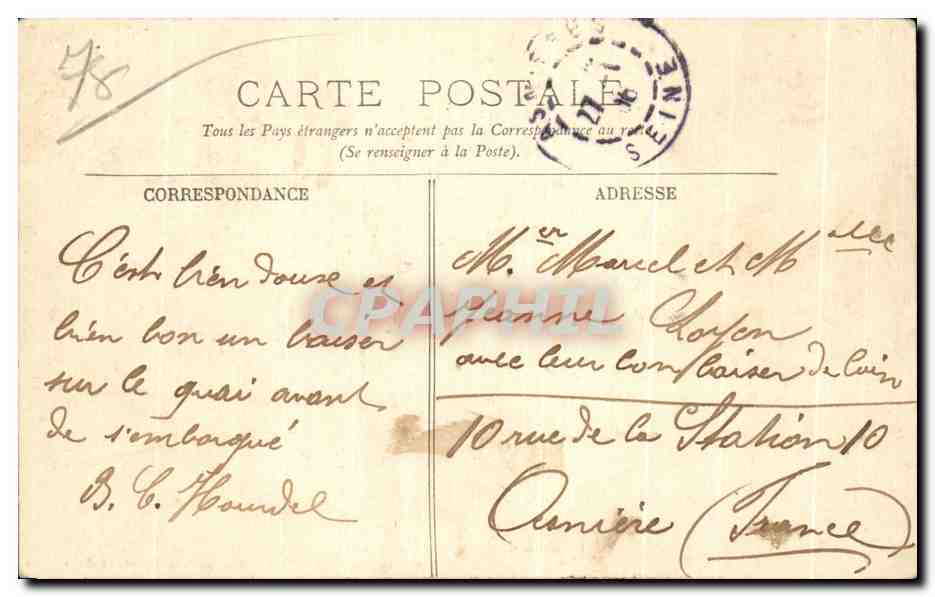 7/8
CARTE POSTALE
Tous les Pays étrangers n'acceptent pas la Correspondance au recto
(Se renseigner à la Poste).
SEINE
27
CORRESPONDANCE
C'est bien douse et
bien bon un baiser
sur le quai avant
de s'embarqué
B. C. Hourdel
ADRESSE
Mr. Marcel et Melle
Jeanne
avec leur bon baiser de loin
10 rue de la Station 10
Asnière (France)
CPAPHIL